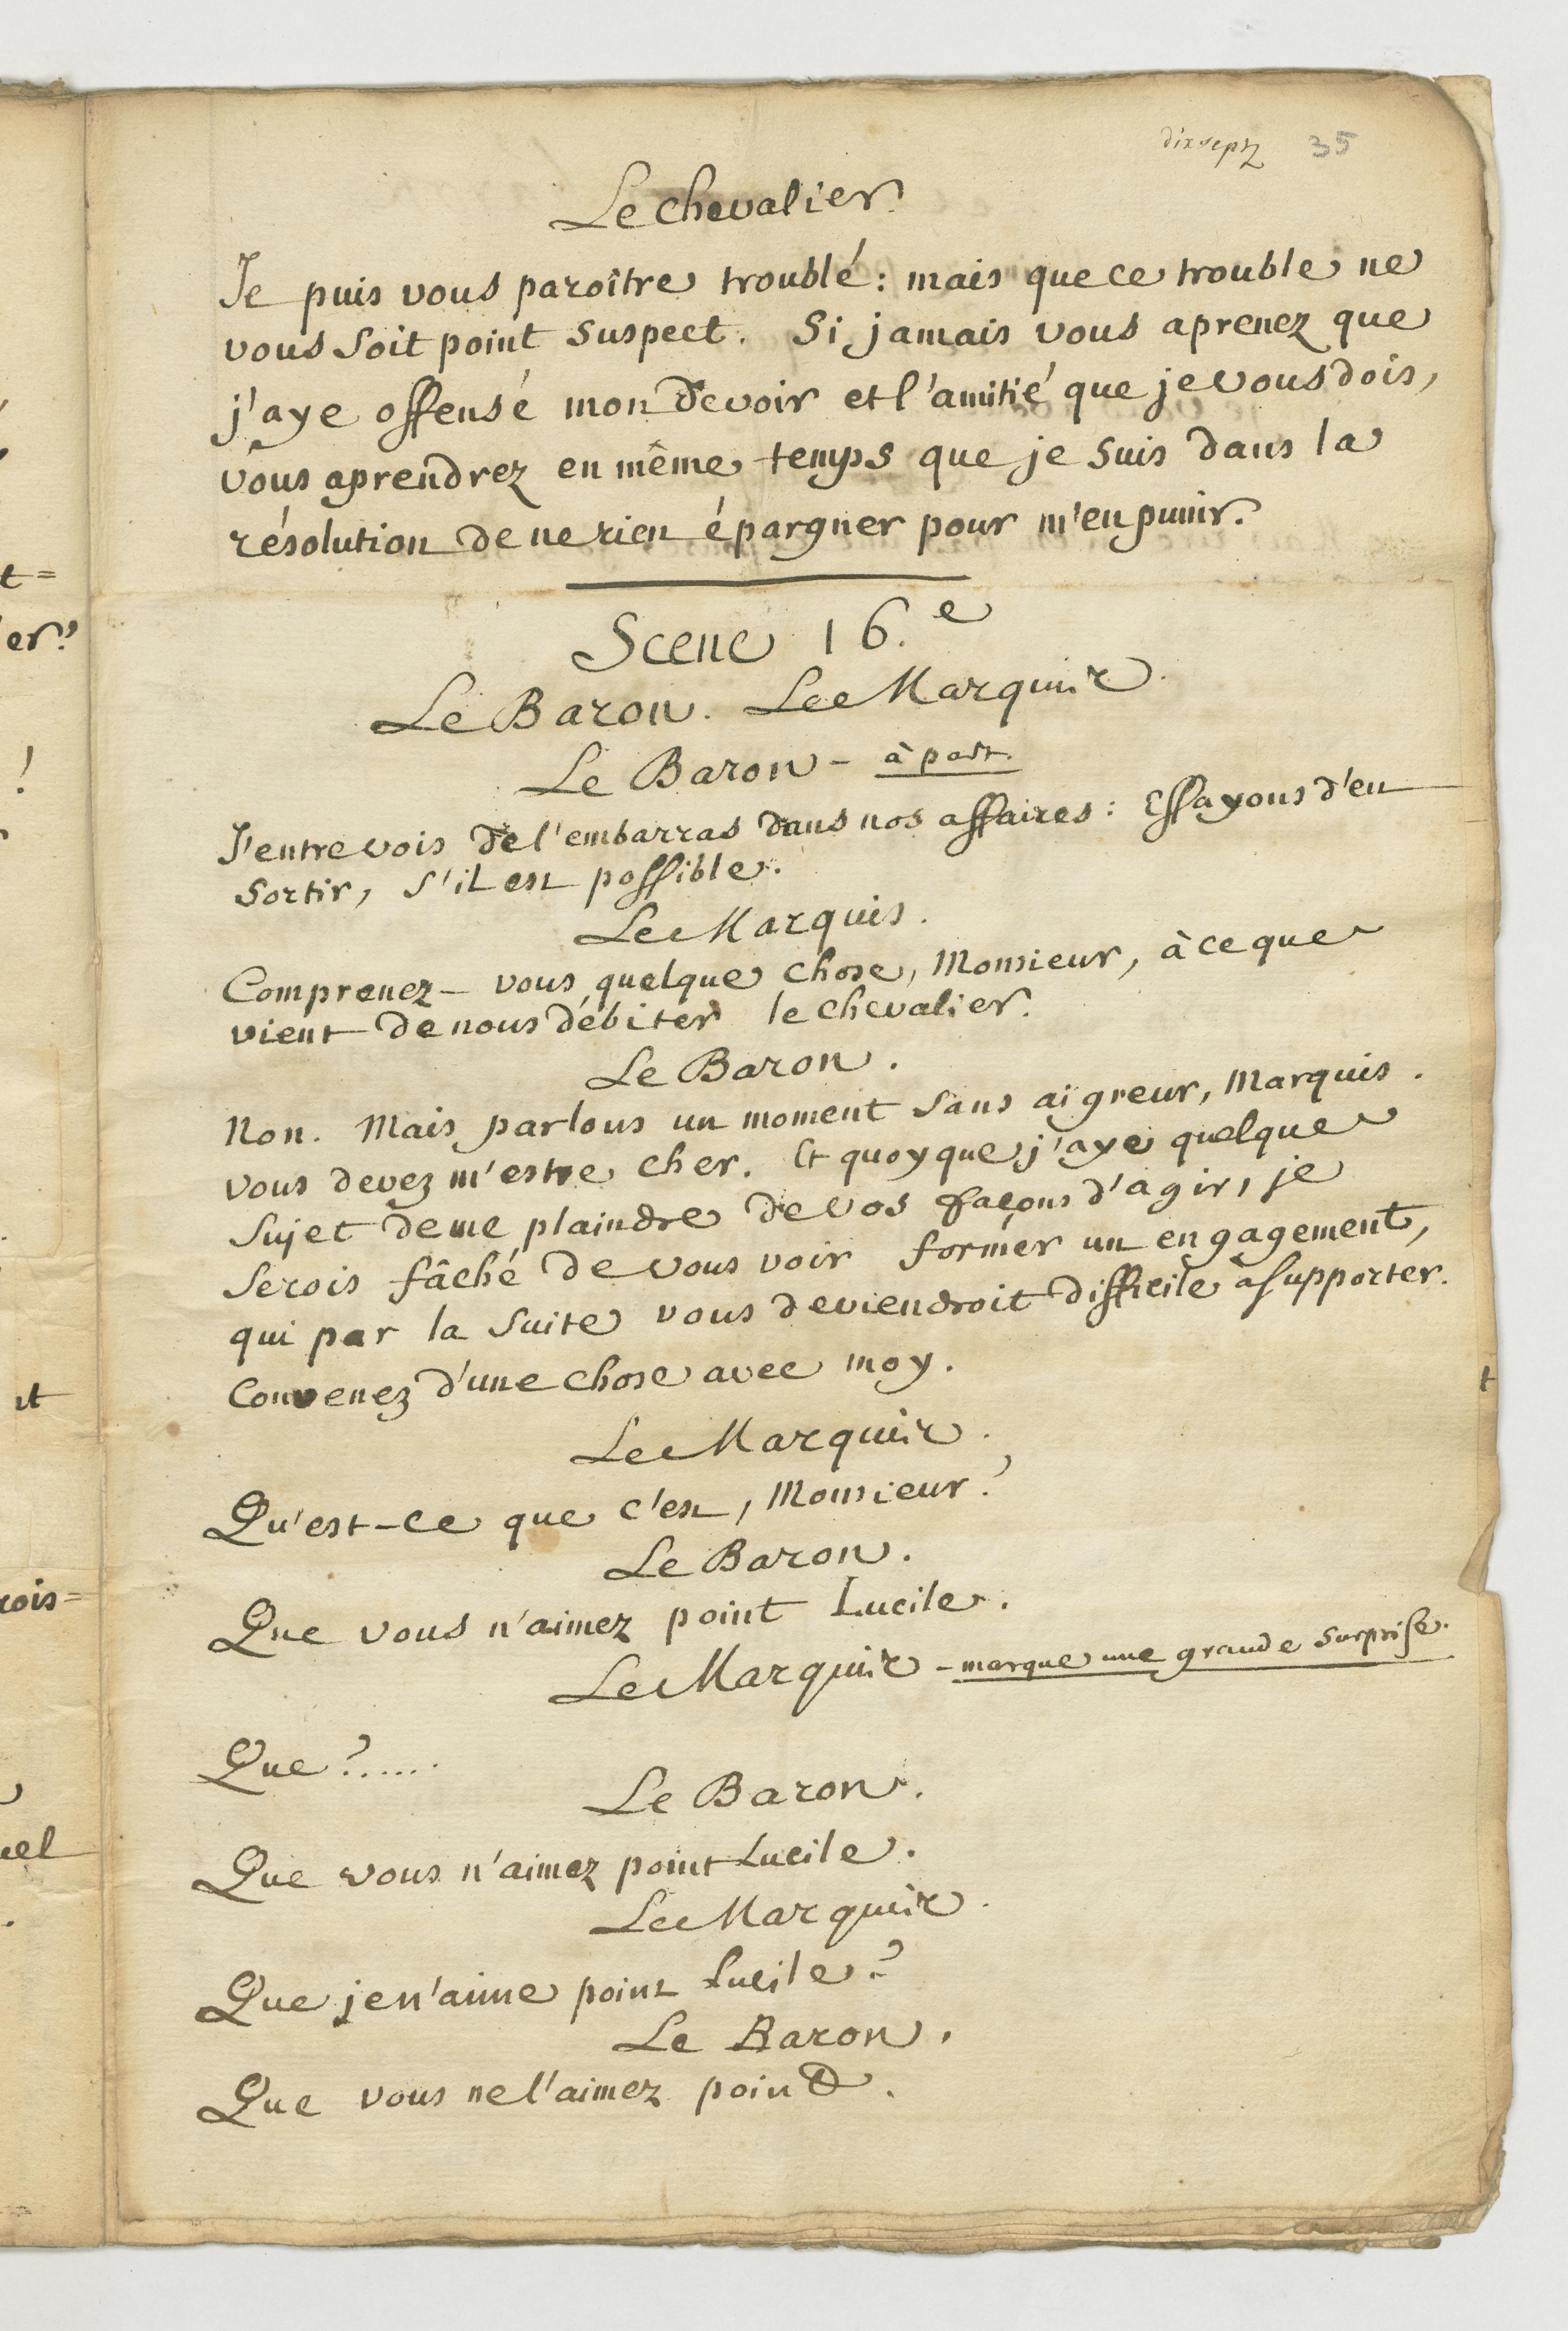 dix sept 35
Le Chevalier.
Je puis vous paroître troublé : mais que ce trouble ne
vous soit point suspect. Si jamais vous aprenez que
j'aye offensé mon devoir et l'amitié que je vous dois,
vous aprendrez en même temps que je suis dans la
résolution de ne rien épargner pour m'en punir.
Scene 16.e
Le Baron. Le Marquis.
Le Baron - à part.
J'entrevois de l'embarras dans nos affaires : Essayons d'en
sortir, s'il est possible.
Le Marquis.
Comprenez-vous quelque chose, Monsieur, à ce que
vient de nous débiter le chevalier.
Le Baron.
Non. Mais parlons un moment sans aigreur, Marquis.
vous devez m'estre cher. Et quoyque j'aye quelque
sujet de me plaindre de vos façons d'agir, je
serois fâché de vous voir former un engagement,
qui par la suite vous deviendroit difficile à supporter.
Convenez d'une chose avec moy.
Le Marquis.
Qu'est-ce que c'est, Monsieur?
Le Baron.
Que vous n'aimez point Lucile.
Le Marquis - marque une grande surprise.
Que ?......
Le Baron.
Que vous n'aimez point Lucile.
Le Marquis.
Que je n'aime point Lucile ?
Le Baron.
Que vous ne l'aimez point.
t=
er?
!
it
rois=
uel
t